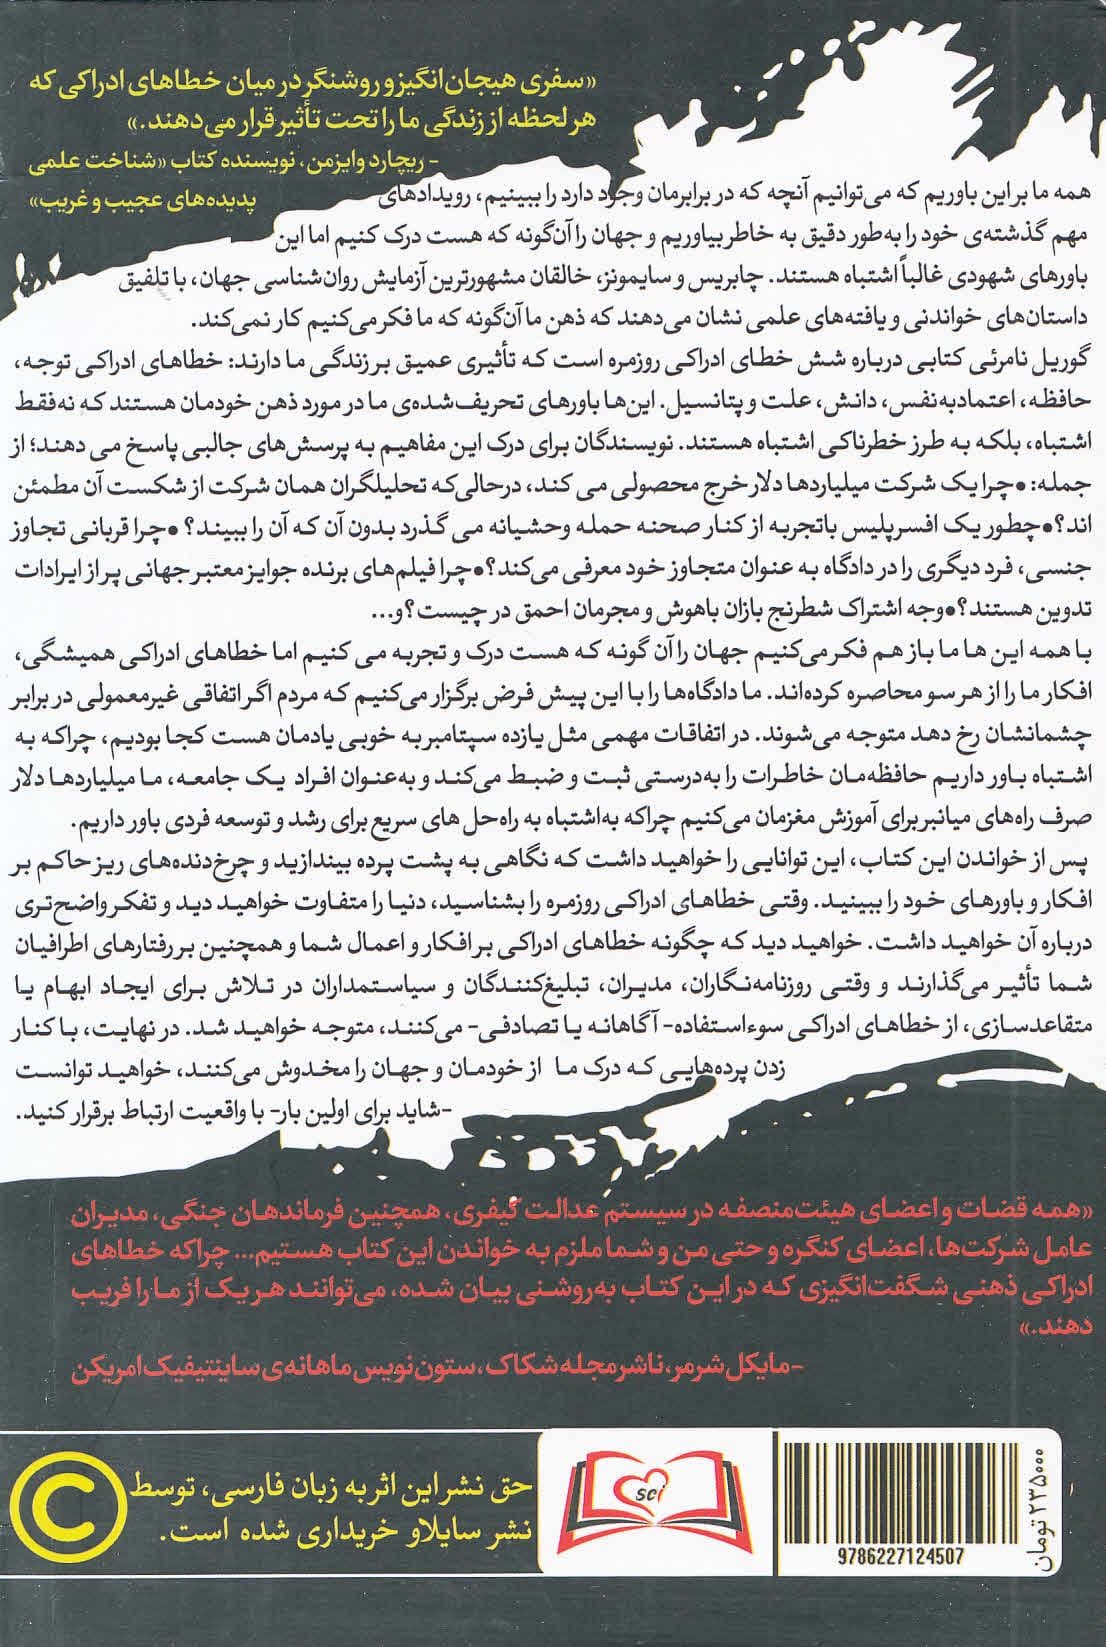 «سفری هیجان‌انگیز و روشنگر در میان خطاهای ادراکی که
هر لحظه از زندگی ما را تحت تأثیر قرار می‌دهند.»
- ریچارد وایزمن، نویسنده کتاب «شناخت علمی
پدیده‌های عجیب و غریب»
همه ما بر این باوریم که می‌توانیم آنچه که در برابرمان وجود دارد را ببینیم، رویدادهای
مهم گذشته‌ی خود را به‌طور دقیق به خاطر بیاوریم و جهان را آن‌گونه که هست درک کنیم اما این
باورهای شهودی غالباً اشتباه هستند. چابریس و سایمونز، خالقان مشهورترین آزمایش روان‌شناسی جهان، با تلفیق
داستان‌های خواندنی و یافته‌های علمی نشان می‌دهند که ذهن ما آن‌گونه که ما فکر می‌کنیم کار نمی‌کند.
گوریل نامرئی کتابی درباره شش خطای ادراکی روزمره است که تأثیری عمیق بر زندگی ما دارند: خطاهای ادراکی توجه،
حافظه، اعتمادبه‌نفس، دانش، علت و پتانسیل. این‌ها باورهای تحریف‌شده‌ی ما در مورد ذهن خودمان هستند که نه‌فقط
اشتباه، بلکه به طرز خطرناکی اشتباه هستند. نویسندگان برای درک این مفاهیم به پرسش‌های جالبی پاسخ می دهند؛ از
جمله: •چرا یک شرکت میلیاردها دلار خرج محصولی می کند، درحالی‌که تحلیلگران همان شرکت از شکست آن مطمئن
اند؟ •چطور یک افسر پلیس باتجربه از کنار صحنه حمله وحشیانه می گذرد بدون آن که آن را ببیند؟ •چرا قربانی تجاوز
جنسی، فرد دیگری را در دادگاه به عنوان متجاوز خود معرفی می‌کند؟ •چرا فیلم‌های برنده جوایز معتبر جهانی پر از ایرادات
تدوین هستند؟ •وجه اشتراک شطرنج بازان باهوش و مجرمان احمق در چیست؟ و...
با همه این ها ما باز هم فکر می‌کنیم جهان را آن گونه که هست درک و تجربه می کنیم اما خطاهای ادراکی همیشگی،
افکار ما را از هر سو محاصره کرده‌اند. ما دادگاه‌ها را با این پیش فرض برگزار می‌کنیم که مردم اگر اتفاقی غیرمعمولی در برابر
چشمانشان رخ دهد متوجه می‌شوند. در اتفاقات مهمی مثل یازده سپتامبر به خوبی یادمان هست کجا بودیم، چراکه به
اشتباه باور داریم حافظه‌مان خاطرات را به‌درستی ثبت و ضبط می‌کند و به‌عنوان افراد یک جامعه، ما میلیاردها دلار
صرف راه‌های میانبر برای آموزش مغزمان می‌کنیم چراکه به‌اشتباه به راه‌حل های سریع برای رشد و توسعه فردی باور داریم.
پس از خواندن این کتاب، این توانایی را خواهید داشت که نگاهی به پشت پرده بیندازید و چرخ‌دنده‌های ریز حاکم بر
افکار و باورهای خود را ببینید. وقتی خطاهای ادراکی روزمره را بشناسید، دنیا را متفاوت خواهید دید و تفکر واضح‌تری
درباره آن خواهید داشت. خواهید دید که چگونه خطاهای ادراکی بر افکار و اعمال شما و همچنین بر رفتارهای اطرافیان
شما تأثیر می‌گذارند و وقتی روزنامه‌نگاران، مدیران، تبلیغ‌کنندگان و سیاستمداران در تلاش برای ایجاد ابهام یا
متقاعدسازی، از خطاهای ادراکی سوءاستفاده- آگاهانه یا تصادفی- می‌کنند، متوجه خواهید شد. در نهایت، با کنار
زدن پرده‌هایی که درک ما از خودمان و جهان را مخدوش می‌کنند، خواهید توانست
-شاید برای اولین بار- با واقعیت ارتباط برقرار کنید.
«همه قضات و اعضای هیئت‌منصفه در سیستم عدالت کیفری، همچنین فرماندهان جنگی، مدیران
عامل شرکت‌ها، اعضای کنگره و حتی من و شما ملزم به خواندن این کتاب هستیم... چراکه خطاهای
ادراکی ذهنی شگفت‌انگیزی که در این کتاب به‌روشنی بیان شده، می‌توانند هر یک از ما را فریب
دهند.»
- مایکل شرمر، ناشر مجله شکاک، ستون‌نویس ماهانه‌ی ساینتیفیک امریکن
حق نشر این اثر به زبان فارسی، توسط
نشر سایلاو خریداری شده است.
©
sci
9786227124507
۲۳۵۰۰۰ تومان
۱